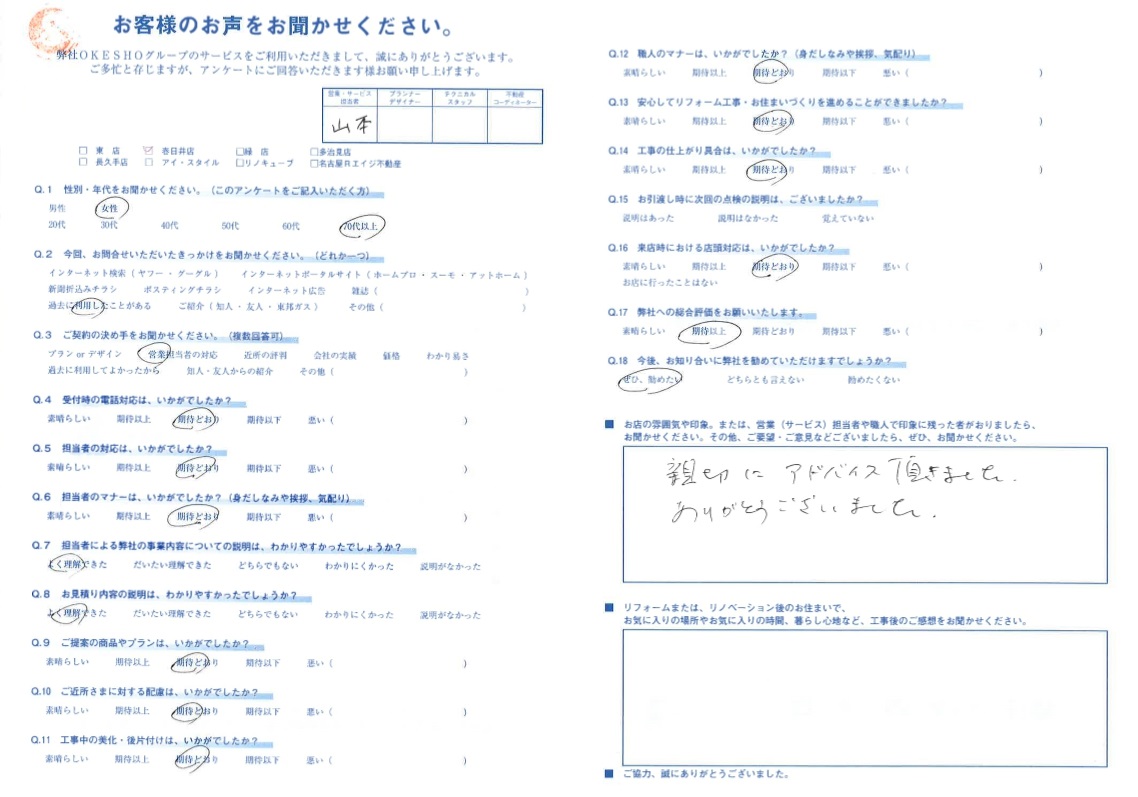 お客様のお声をお聞かせください。
弊社OKESHOグループのサービスをご利用いただきまして、誠にありがとうございます。
ご多忙と存じますが、アンケートにご回答いただきます様お願い申し上げます。
営業・サービス担当者 プランナーデザイナー テクニカルスタッフ 不動産コーディネーター
山本
□ 東 店 ☑ 春日井店 □緑 店 □多治見店
□ 長久手店 □ アイ・スタイル □リノキューブ □名古屋Rエイジ不動産
Q.1 性別・年代をお聞かせください。(このアンケートをご記入いただく方)
男性 女性
20代 30代 40代 50代 60代 70代以上
Q.2 今回、お問合せいただいたきっかけをお聞かせください。(どれか一つ)
インターネット検索(ヤフー・グーグル) インターネットポータルサイト(ホームプロ・スーモ・アットホーム)
新聞折込みチラシ ポスティングチラシ インターネット広告 雑誌( )
過去に利用したことがある ご紹介(知人・友人・東邦ガス) その他( )
Q.3 ご契約の決め手をお聞かせください。(複数回答可)
プラン or デザイン 営業担当者の対応 近所の評判 会社の実績 価格 わかり易さ
過去に利用してよかったから 知人・友人からの紹介 その他( )
Q.4 受付時の電話対応は、いかがでしたか?
素晴らしい 期待以上 期待どおり 期待以下 悪い( )
Q.5 担当者の対応は、いかがでしたか?
素晴らしい 期待以上 期待どおり 期待以下 悪い( )
Q.6 担当者のマナーは、いかがでしたか?(身だしなみや挨拶、気配り)
素晴らしい 期待以上 期待どおり 期待以下 悪い( )
Q.7 担当者による弊社の事業内容についての説明は、わかりやすかったでしょうか?
よく理解できた だいたい理解できた どちらでもない わかりにくかった 説明がなかった
Q.8 お見積り内容の説明は、わかりやすかったでしょうか?
よく理解できた だいたい理解できた どちらでもない わかりにくかった 説明がなかった
Q.9 ご提案の商品やプランは、いかがでしたか?
素晴らしい 期待以上 期待どおり 期待以下 悪い( )
Q.10 ご近所さまに対する配慮は、いかがでしたか?
素晴らしい 期待以上 期待どおり 期待以下 悪い( )
Q.11 工事中の美化・後片付けは、いかがでしたか?
素晴らしい 期待以上 期待どおり 期待以下 悪い( )
Q.12 職人のマナーは、いかがでしたか?(身だしなみや挨拶、気配り)
素晴らしい 期待以上 期待どおり 期待以下 悪い( )
Q.13 安心してリフォーム工事・お住まいづくりを進めることができましたか?
素晴らしい 期待以上 期待どおり 期待以下 悪い( )
Q.14 工事の仕上がり具合は、いかがでしたか?
素晴らしい 期待以上 期待どおり 期待以下 悪い( )
Q.15 お引渡し時に次回の点検の説明は、ございましたか?
説明はあった 説明はなかった 覚えていない
Q.16 来店時における店頭対応は、いかがでしたか?
素晴らしい 期待以上 期待どおり 期待以下 悪い( )
お店に行ったことはない
Q.17 弊社への総合評価をお願いいたします。
素晴らしい 期待以上 期待どおり 期待以下 悪い( )
Q.18 今後、お知り合いに弊社を勧めていただけますでしょうか?
ぜひ、勧めたい どちらとも言えない 勧めたくない
■ お店の雰囲気や印象。または、営業(サービス)担当者や職人で印象に残った者がおりましたら、
お聞かせください。その他、ご要望・ご意見などございましたら、ぜひ、お聞かせください。
親切に アドバイス頂きました.
ありがとうございました.
■ リフォームまたは、リノベーション後のお住まいで、
お気に入りの場所やお気に入りの時間、暮らし心地など、工事後のご感想をお聞かせください。
■ ご協力、誠にありがとうございました。